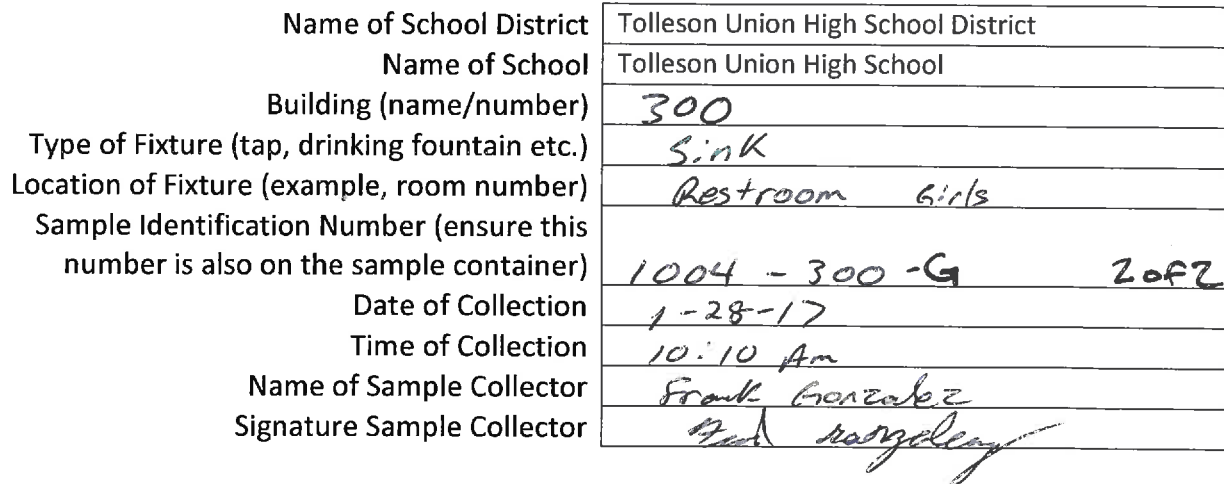 Name of School District Tolleson Union High School District
Name of School Tolleson Union High School
Building (name/number) 300
Type of Fixture (tap, drinking fountain etc.) Sink
Location of Fixture (example, room number) Restroom Girls
Sample Identification Number (ensure this
number is also on the sample container) 1004 - 300 - G 2 of 2
Date of Collection 1-28-17
Time of Collection 10:10 Am
Name of Sample Collector Frank Gonzalez
Signature Sample Collector